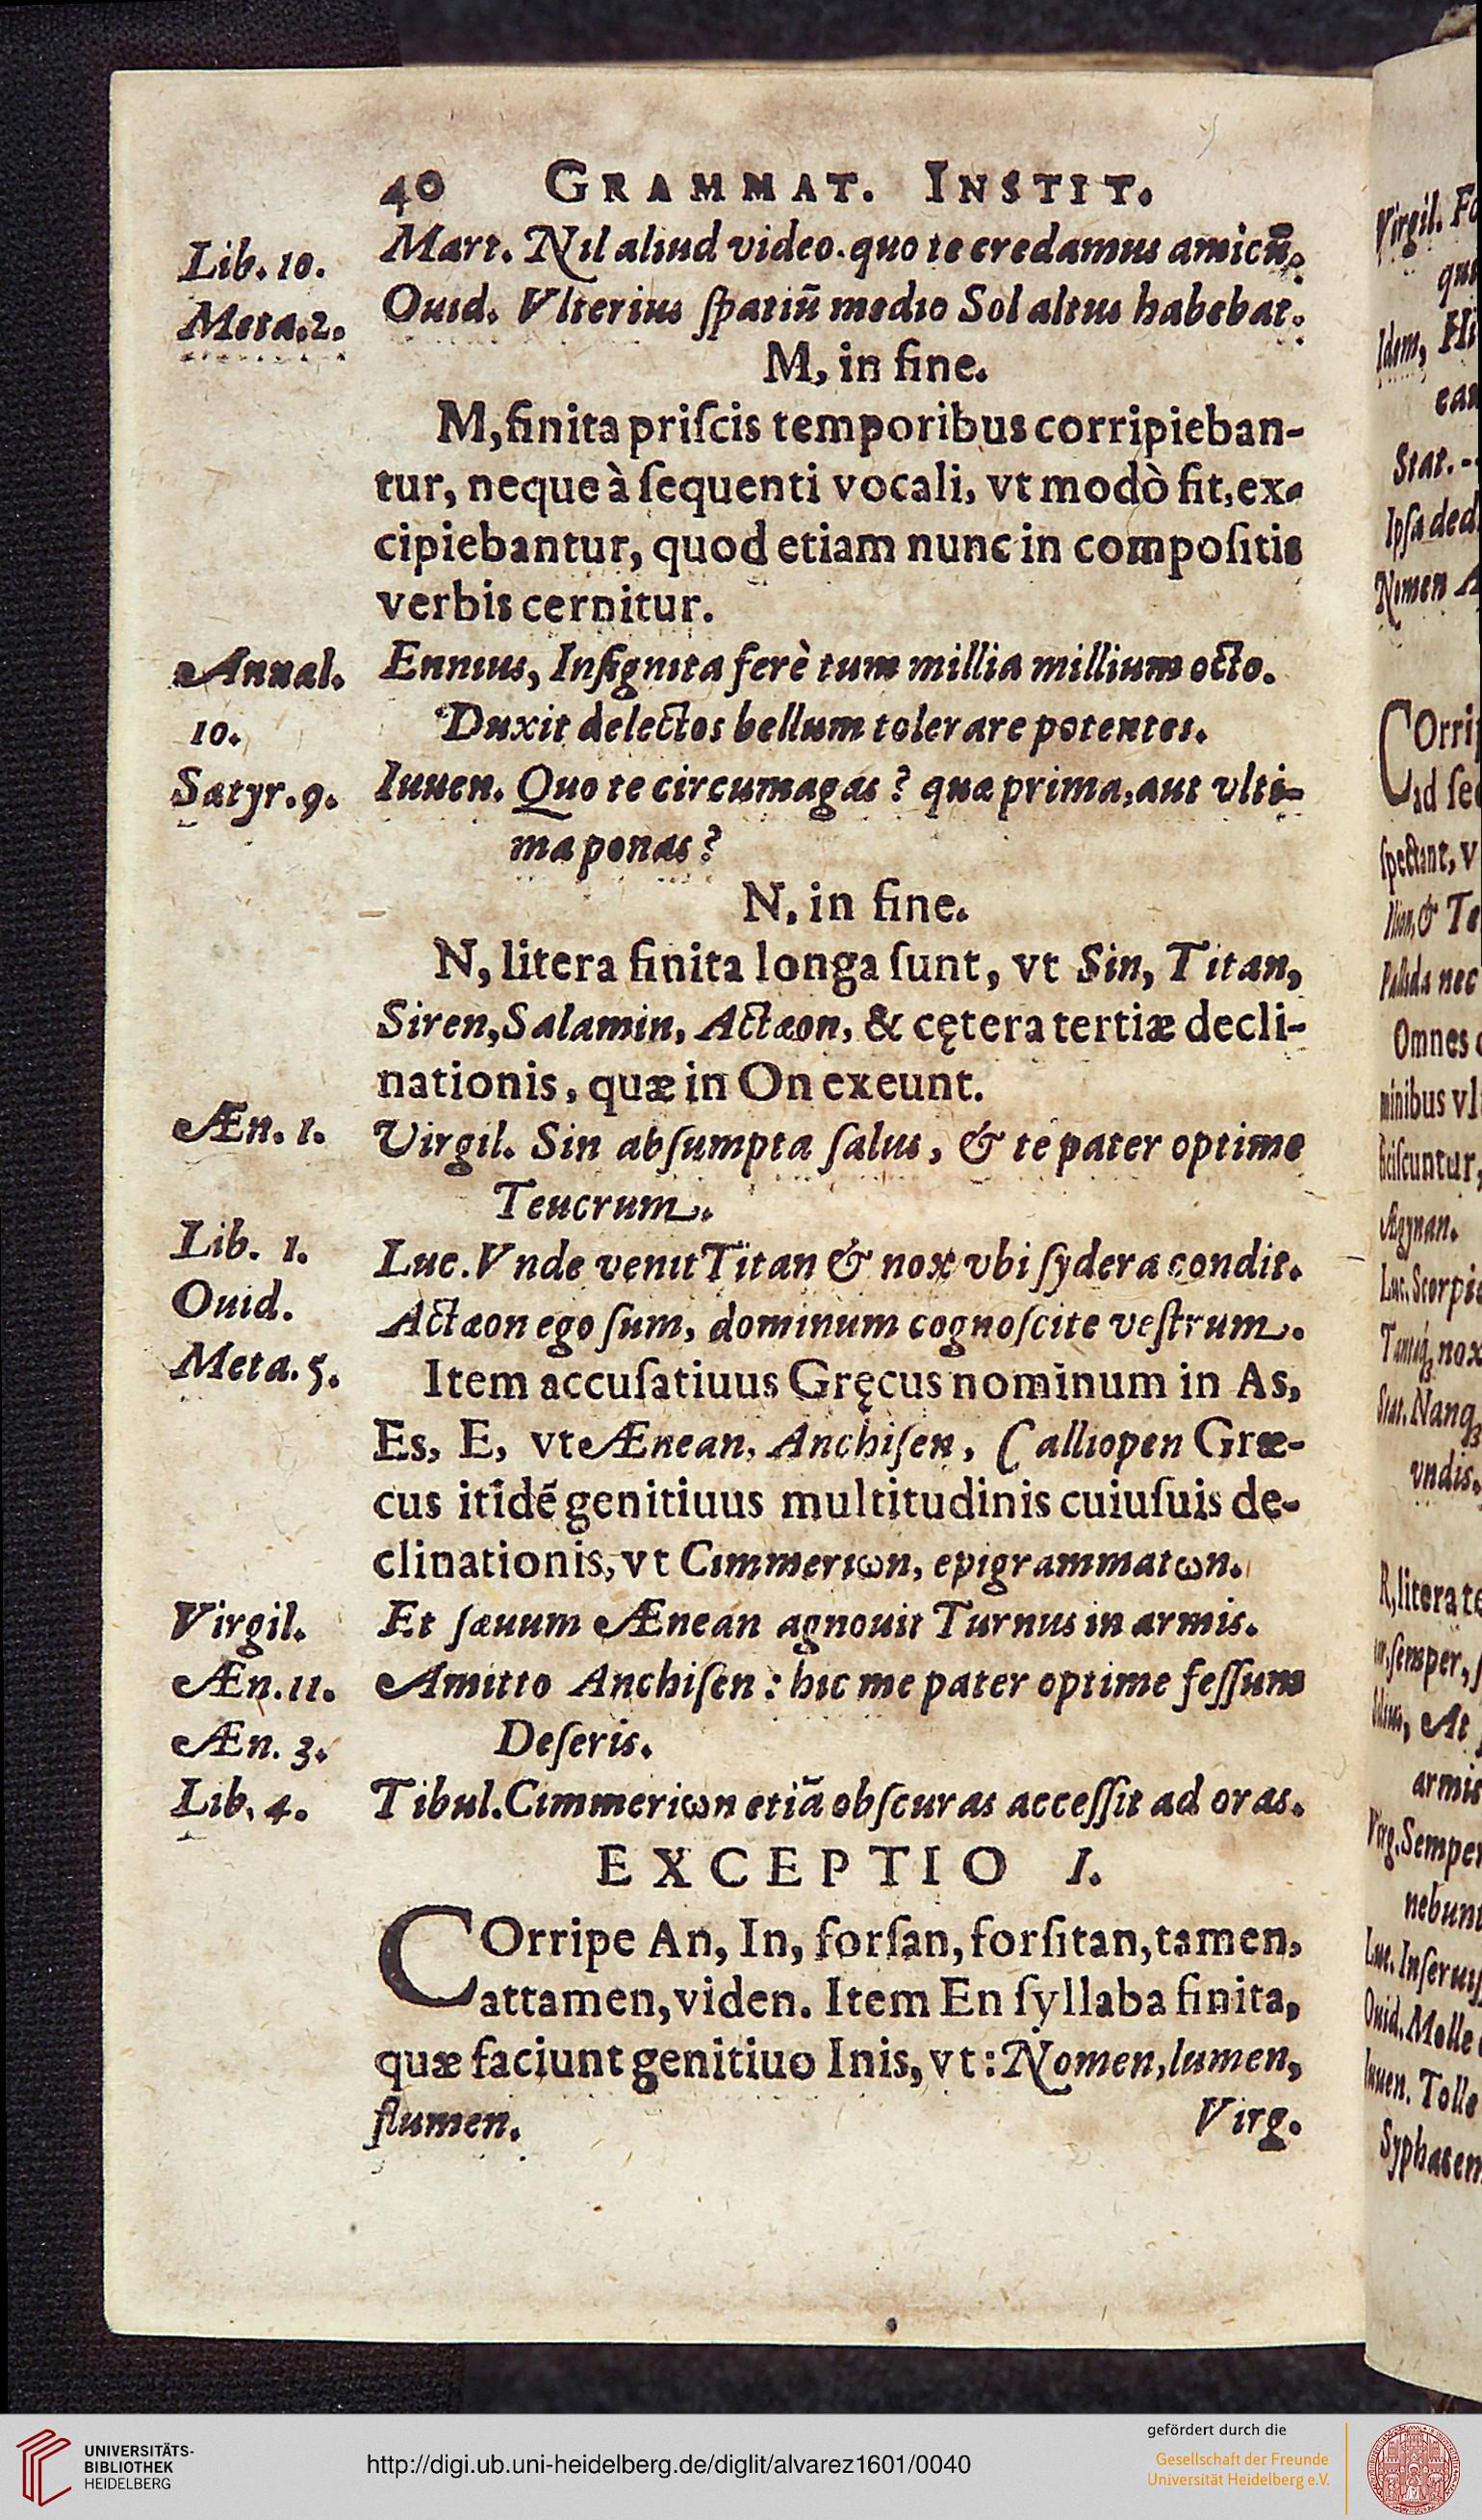 40 GRAMMAT. INSTIT.
Lib. 10. Mart. Nil aliud video. quo te credamus amicũ.
Meta. 2. Ouid. Vlterius ſpatiũ medio Sol altus habebat.
M, in fine.
M, finita priſcis temporibus corripieban-
tur, neque à ſequenti vocali, vt modò fit, ex-
cipiebantur, quod etiam nunc in compoſitis
verbis cernitur.
Annal. Ennius, Inſignita ferè tum millia millium octo.
10. Duxit delectos bellum tolerare potentes.
Satyr. 9. Iuuen. Quo te circumagas? quæ prima, aut vlti-
ma ponas?
N, in fine.
N, litera finita longa ſunt, vt Sin, Titan,
Siren, Salamin, Actæon, & cętera tertiæ decli-
nationis, quæ in On exeunt.
Æn. 1. Virgil. Sin abſumpta ſalus, & te pater optime
Teucrum.
Lib. 1. Luc. Vnde venit Titan & nox vbi ſydera condit.
Ouid. Actæon ego ſum, dominum cognoſcite veſtrum.
Meta. 5. Item accuſatiuus Gręcus nominum in As,
Es, E, vt Ænean, Anchiſen, Calliopen Græ-
cus itidẽ genitiuus multitudinis cuiuſuis de-
clinationis, vt Cimmeriωn, epigrammatωn.
Virgil. Et ſæuum Ænean agnouit Turnus in armis.
Æn. 11. Amitto Anchiſen: hic me pater optime feſſum
Æn. 3. Deſeris.
Lib. 4. Tibul. Cimmeriωn etiã obſcuras acceſſit ad oras.
EXCEPTIO I.
COrripe An, In, forſan, forſitan, tamen,
attamen, viden. Item En ſyllaba finita,
quæ faciunt genitiuo Inis, vt: Nomen, lumen,
flumen. Virg.
Virgil.
Idem,
Stat.
Ipſa
Nomen
COrri
ad
ſpectant,
Pallida nec
Omnes
minibus
Ægynan.
Luc. Scorpi
nox
Stat. Nanq
vndis.
R, litera
ſemper,
At
armis
Virg. Semper
Ouid. Molle
Iuuen. Tolle
UNIVERSITÄTS-
BIBLIOTHEK
HEIDELBERG
http://digi.ub.uni-heidelberg.de/diglit/alvarez1601/0040
gefördert durch die
Gesellschaft der Freunde
Universität Heidelberg e.V.